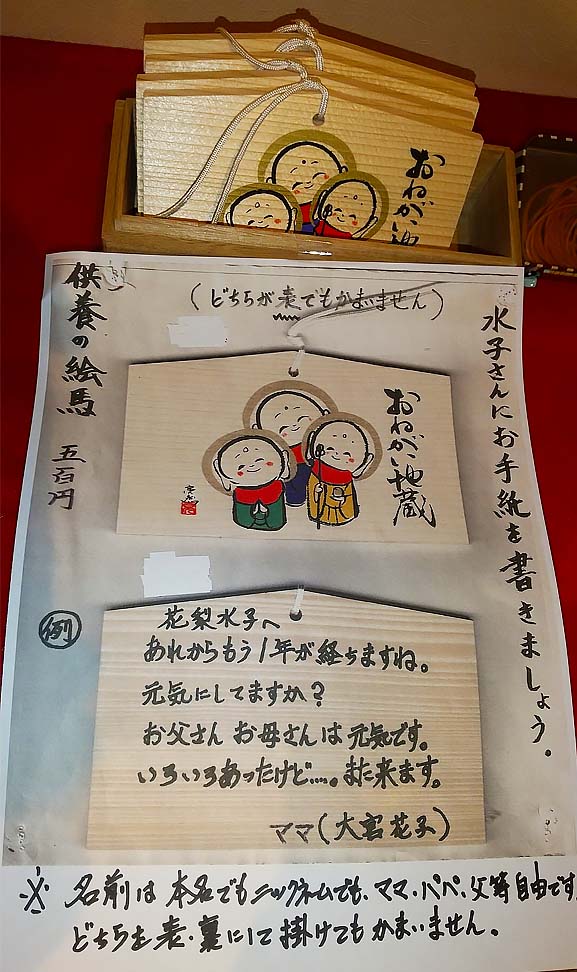 おねがい地
水子さんにお手紙を書きましょう。
(どちらが表でもかまいません)
供養の絵馬 五百円
おねがい地蔵
例
花梨水子へ
あれからもう1年が経ちますね。
元気にしてますか?
お父さん お母さんは元気です。
いろいろあったけど……。また来ます。
ママ(大宮花子)
※ 名前は本名でもニックネームでも、ママ・パパ、父等自由です
どちらを表・裏にして掛けてもかまいません。